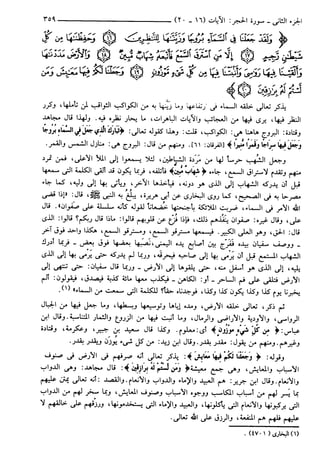 الجزء الثاني - سورة الحجر: الآيات (١٦ - ٢٠) ٣٥٩
﴿ وَلَقَدْ جَعَلْنَا فِي السَّمَاءِ بُرُوجًا وَزَيَّنَّاهَا لِلنَّاظِرِينَ وَحَفِظْنَاهَا مِن كُلِّ
شَيْطَانٍ رَّجِيمٍ إِلَّا مَنِ اسْتَرَقَ السَّمْعَ فَأَتْبَعَهُ شِهَابٌ مُّبِينٌ وَالْأَرْضَ مَدَدْنَاهَا
يذكر تعالى خلقه السماء في ارتفاعها وما زينها به من الكواكب الثواقب لمن تأملها، وكرر
النظر فيها، يرى فيها من العجائب والآيات الباهرات، ما يحار نظره فيه. ولهذا قال مجاهد
وقتادة: البروج هاهنا هي: الكواكب، قلت: وهذا كقوله تعالى: ﴿تبارك الذي جعل في السماء بروجا
وجعل فيها سراجا وقمرا منيرا﴾ [الفرقان: ٦١]. ومنهم من قال: البروج هي: منازل الشمس والقمر.
وجعل الشهب حرساً لها من مردة الشياطين، لئلا يسمعوا إلى الملأ الأعلى، فمن تمرد
منهم وتقدم لاستراق السمع، جاءه ﴿شهاب مبين﴾ فأتلفه، فربما يكون قد ألقى الكلمة التي سمعها
قبل أن يدركه الشهاب إلى الذي هو دونه، فيأخذها الآخر، ويأتي بها إلى وليه، كما جاء
مصرحا به في الصحيح، كما روى البخاري عن أبي هريرة، يبلغ به النبي ﷺ، قال: «إذا قضى
الله الأمر في السماء، ضربت الملائكة بأجنحتها خضعاناً لقوله كأنه سلسلة على صفوان». قال
علي، وقال غيره: صفوان ينفذهم ذلك، فإذا فزع عن قلوبهم قالوا: ماذا قال ربكم؟ قالوا: الذي
قال: الحق، وهو العلي الكبير. فيسمعها مسترقو السمع، ومسترقو السمع، هكذا واحد فوق آخر
- ووصف سفيان بيده ففرّج بين أصابع يده اليمنى، نصبها بعضها فوق بعض - فربما أدرك
الشهاب المستمع قبل أن يرمي بها إلى صاحبه فيحرقه، وربما لم يدركه حتى يرمي بها إلى الذي
يليه، إلى الذي هو أسفل منه، حتى يلقوها إلى الأرض - وربما قال سفيان: حتى تنتهي إلى
الأرض فتلقى على فم الساحر - أو: الكاهن - فيكذب معها مائة كذبة فيصدق، فيقولون: ألم
يخبرنا يوم كذا وكذا يكون كذا وكذا، فوجدناه حقاً؟ للكلمة التي سمعت من السماء» (١).
ثم ذكر، تعالى خلقه الأرض، ومده إياها وتوسيعها وبسطها، وما جعل فيها من الجبال
الرواسي، والأودية والأراضي والرمال، وما أنبت فيها من الزروع والثمار المتناسبة. وقال ابن
عباس: ﴿من كل شيء موزون﴾ أي: معلوم. وكذا قال سعيد بن جبير، وعكرمة، وقتادة
وغيرهم. ومنهم من يقول: مقدر بقدر. وقال ابن زيد: من كل شيء يوزن ويقدر بقدر.
وقوله: ﴿وجعلنا لكم فيها معايش﴾: يذكر تعالى أنه صرفهم في الأرض في صنوف
الأسباب والمعايش، وهي جمع معيشة ﴿ومن لستم له برازقين﴾: قال مجاهد: وهي الدواب
والأنعام. وقال ابن جرير: هم العبيد والإماء والدواب والأنعام. والقصد: أنه تعالى يمتن عليهم
بما يسر لهم من أسباب المكاسب ووجوه الأسباب وصنوف المعايش، وبما سخر لهم من الدواب
التي يركبونها والأنعام التي يأكلونها، والعبيد والإماء التي يستخدمونها، ورزقهم على خالقهم لا
عليهم فلهم هم المنفعة، والرزق على الله تعالى.
(١) البخاري (٤٧٠١).